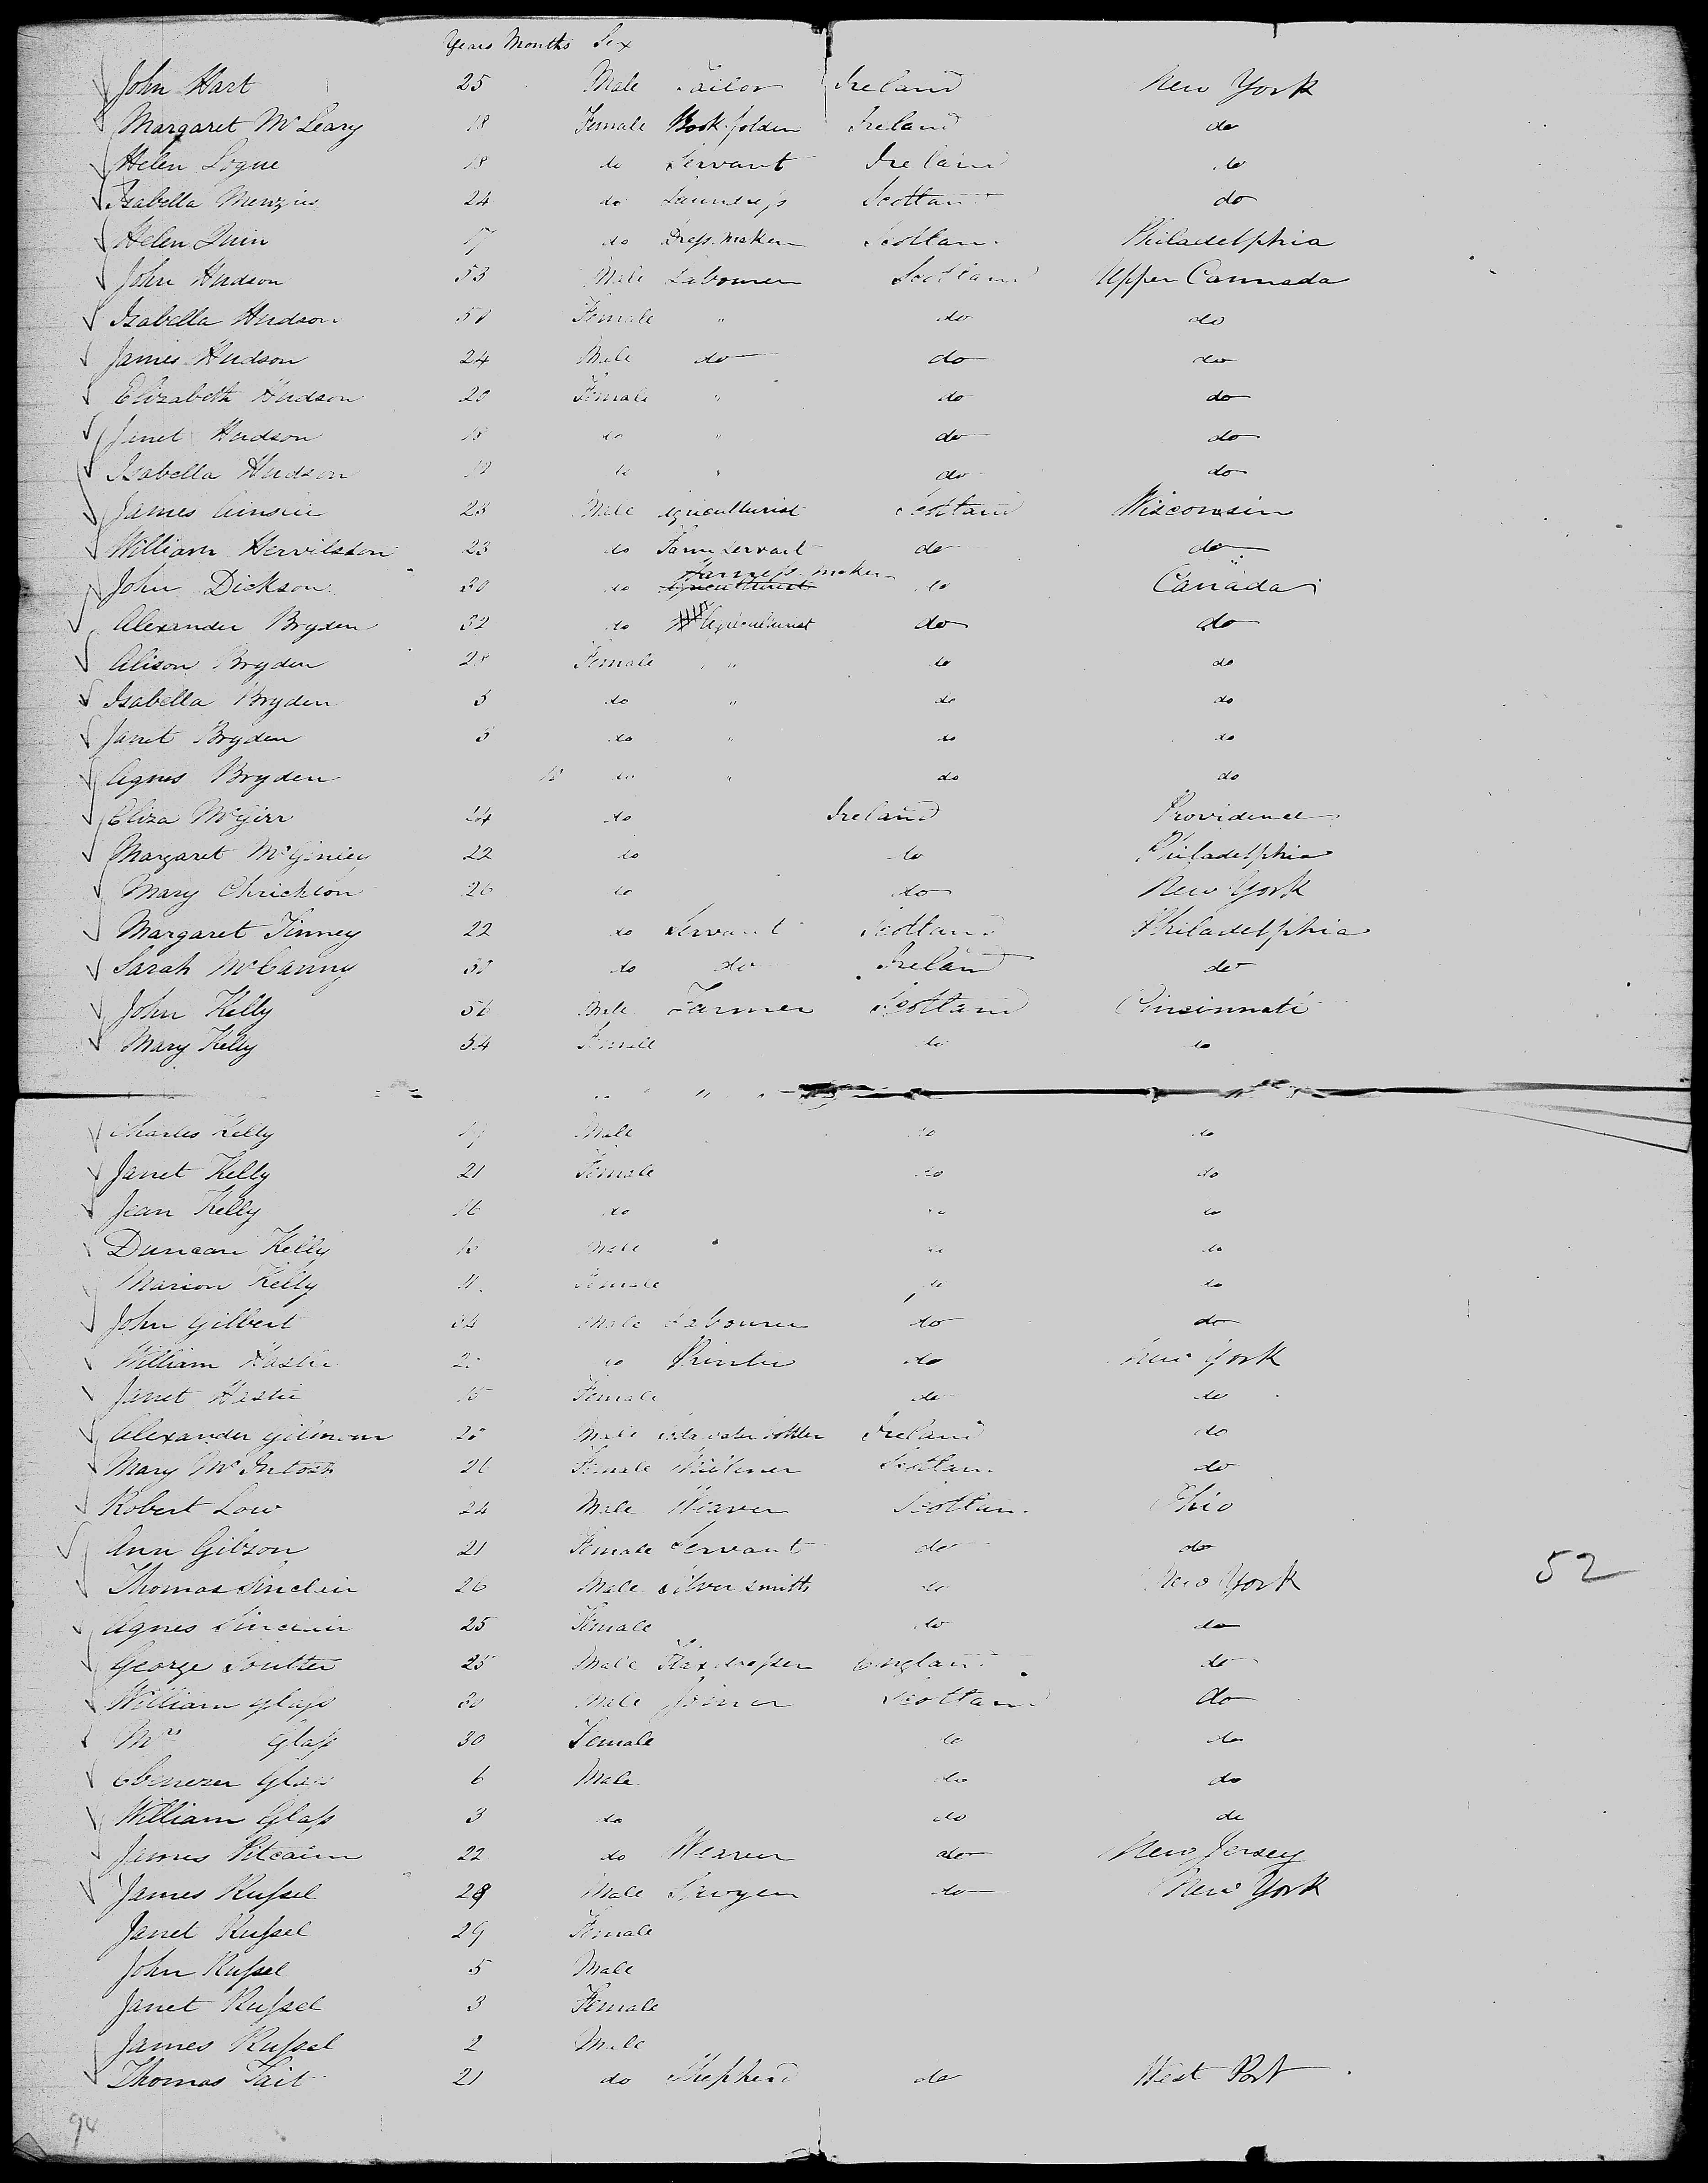 Years Months Sex
John Hart 25 Male Tailor Ireland New York
Margaret McLeary 18 Female Book folder Ireland do
Helen Logue 18 do Servant Ireland do
Isabella Menzies 24 do Laundress Scotland do
Helen Quin 17 do Dress maker Scotland Philadelphia
John Hudson 53 Male Labourer Scotland Upper Cannada
Isabella Hudson Female " do do
James Hudson 24 Male do do do
Elizabeth Hudson 20 Female " do do
Janet Hudson 18 do " do do
Isabella Hudson 12 do " do do
James Ainslie 23 Male Agriculturist Scotland Wisconsin
William 23 do Farm Servant do do
Harness maker
John Dickson 30 do Agriculturist do Canada
Alexander Bryden 32 do Agriculturist do do
Alison Bryden 28 Female " do do
Isabella Bryden 5 do " do do
Janet Bryden 3 do " do do
Agnes Bryden do " do do
Eliza McGirr 24 do Ireland Providence
Margaret McGinley 22 do do Philadelphia
Mary Chrichton 26 do do New York
Margaret Finney 22 do Servant Scotland Philadelphia
Sarah McCanny do do Ireland do
John Kelly 56 Male Farmer Scotland Cincinnati
Mary Kelly 54 Female do do
Charles Kelly 19 Male do do
Janet Kelly 21 Female do do
Jean Kelly 16 do do do
Duncan Kelly Male do do
Marion Kelly 11 Female do do
John Gilbert 34 Male Labourer do do
William Hastie do Printer do New York
Janet Hastie Female do do
Alexander Gilmour Male Soda water bottler Ireland do
Mary McIntosh 26 Female Milliner Scotland do
Robert Low 24 Male Weaver Scotland Ohio
Ann Gibson 21 Female Servant do do
Thomas Sinclair 26 Male Silver smith do New York 52
Agnes Sinclair 25 Female do do
George Soutter 25 Male Flax dresser England do
William Glass 30 Male Joiner Scotland do
Mrs Glass 30 Female do do
Ebenezer Glass 6 Male do do
William Glass 3 do do do
James Pitcairn 22 do Weaver do New Jersey
James Russel 28 Male Sawyer do New York
Janet Russel 29 Female
John Russel 5 Male
Janet Russel 3 Female
James Russel 2 Male
Thomas Tait 21 do Shepherd do West Port
94